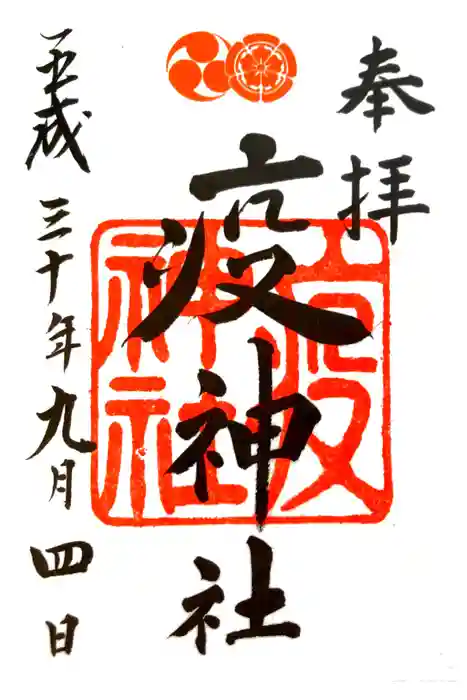 奉拝
疫神社
疫神社
平成三十年九月四日